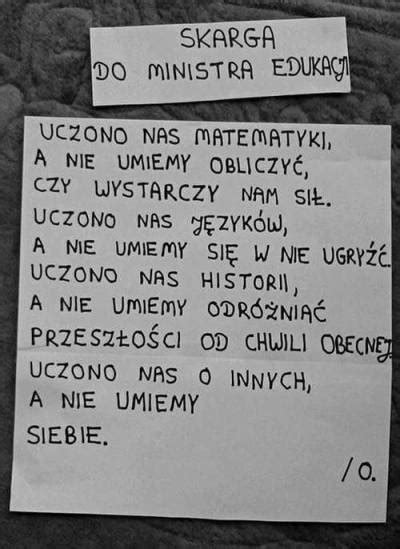 SKARGA
DO MINISTRA EDUKACJI
UCZONO NAS MATEMATYKI,
A NIE UMIEMY OBLICZYĆ,
CZY WYSTARCZY NAM SIŁ.
UCZONO NAS JĘZYKÓW,
A NIE UMIEMY SIĘ W NIE UGRYŹĆ.
UCZONO NAS HISTORII,
A NIE UMIEMY ODRÓŻNIAĆ
PRZESZŁOŚCI OD CHWILI OBECNEJ.
UCZONO NAS O INNYCH,
A NIE UMIEMY
SIEBIE.
/O.